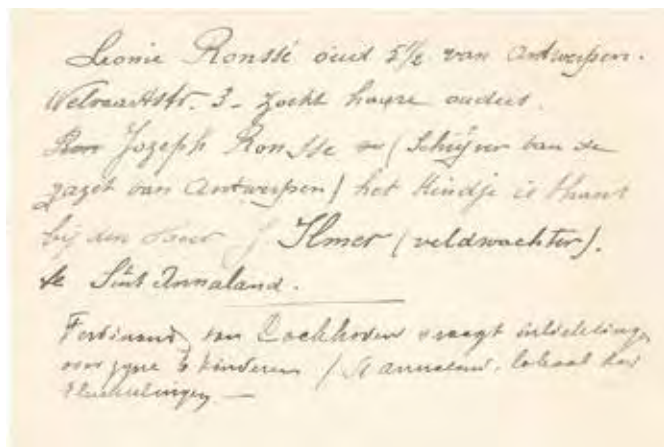 Leonie Ronssé oud 5 1/2 van Antwerpen.
Welvaartstr. 3 - Zoekt haare ouders.
Ron Jozeph Ronsse (Schrijver van de
gazet van Antwerpen) het Kindje is thans
bij den Heer J Ilmer (veldwachter).
te Sint Annaland.
Ferdinand van vraagt inlichtingen
over zyne 6 kinderen / St annaland. lokaal der
vluchtelingen —